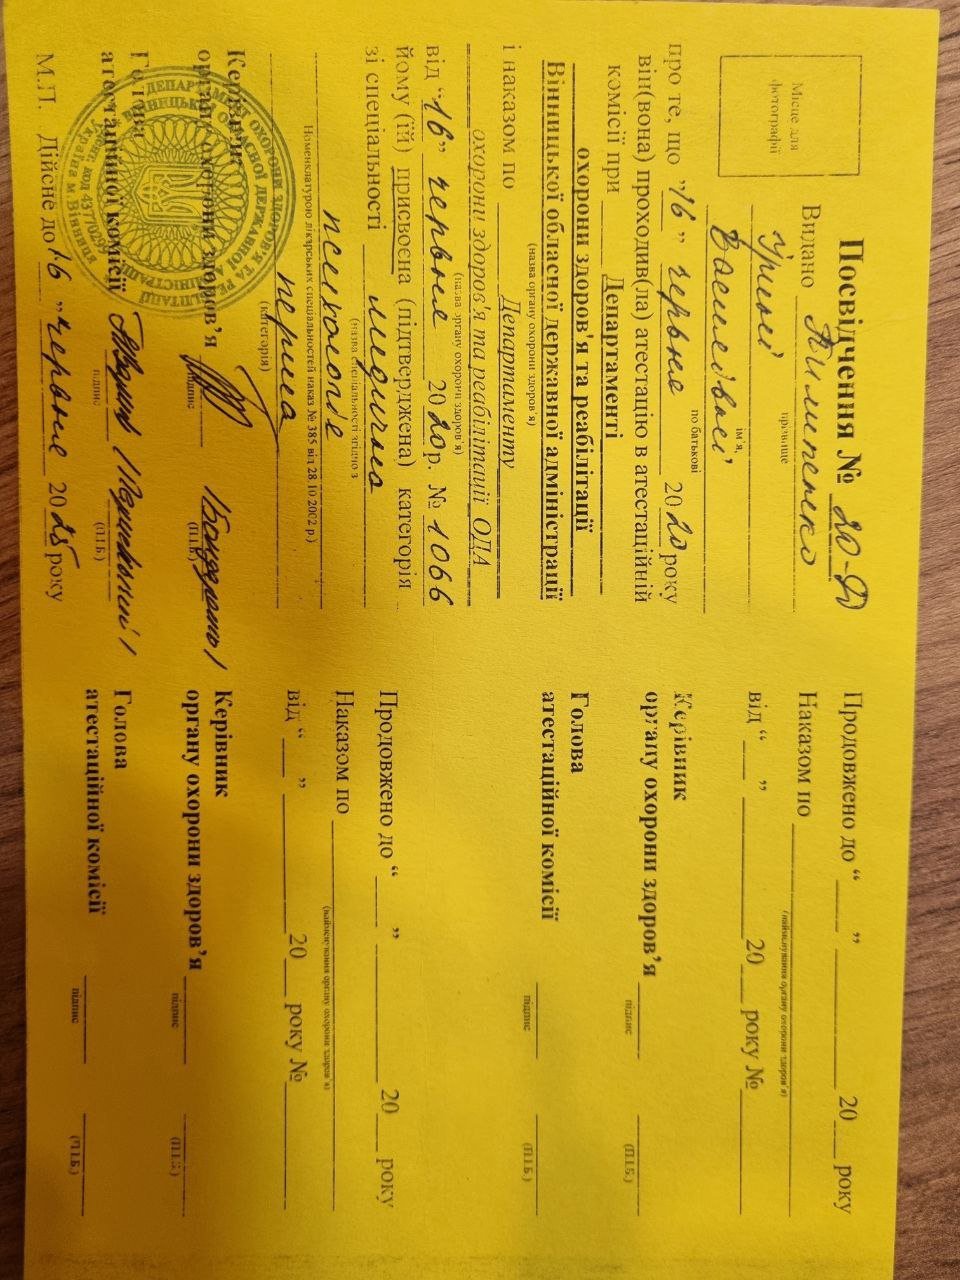 Місце для
фотографії
Посвідчення № 20-Д
Видано Пилипенко
прізвище
Ірині
ім'я,
Василівні
по батькові
про те, що "16" червня 2020 року
він(вона) проходив(ла) атестацію в атестаційній
комісії при Департаменті
охорони здоров'я та реабілітації
Вінницької обласної державної адміністрації
(назва органу охорони здоров'я)
і наказом по Департаменту
охорони здоров'я та реабілітації ОДА
(назва органу охорони здоров'я)
від "16" червня 2020р. № 1066
йому (їй) присвоєна (підтверджена) категорія
зі спеціальності медична
(назва спеціальності згідно з
психологія
Номенклатурою лікарських спеціальностей наказ № 385 від 28.10.2002 р.)
перша
(категорія)
Керівник
органу охорони здоров'я
підпис (П.І.Б.)
Голова
атестаційної комісії
підпис (П.І.Б.)
М.П. Дійсне до "16" червня 2025 року
Продовжено до “___” ________ 20___ року
Наказом по ________
(найменування органу охорони здоров'я)
від “___” ________ 20___ року № ________
Керівник
органу охорони здоров'я ________
підпис (П.І.Б.)
Голова
атестаційної комісії ________
підпис (П.І.Б.)
Продовжено до “___” ________ 20___ року
Наказом по ________
(найменування органу охорони здоров'я)
від “___” ________ 20___ року № ________
Керівник
органу охорони здоров'я ________
підпис (П.І.Б.)
Голова
атестаційної комісії ________
підпис (П.І.Б.)